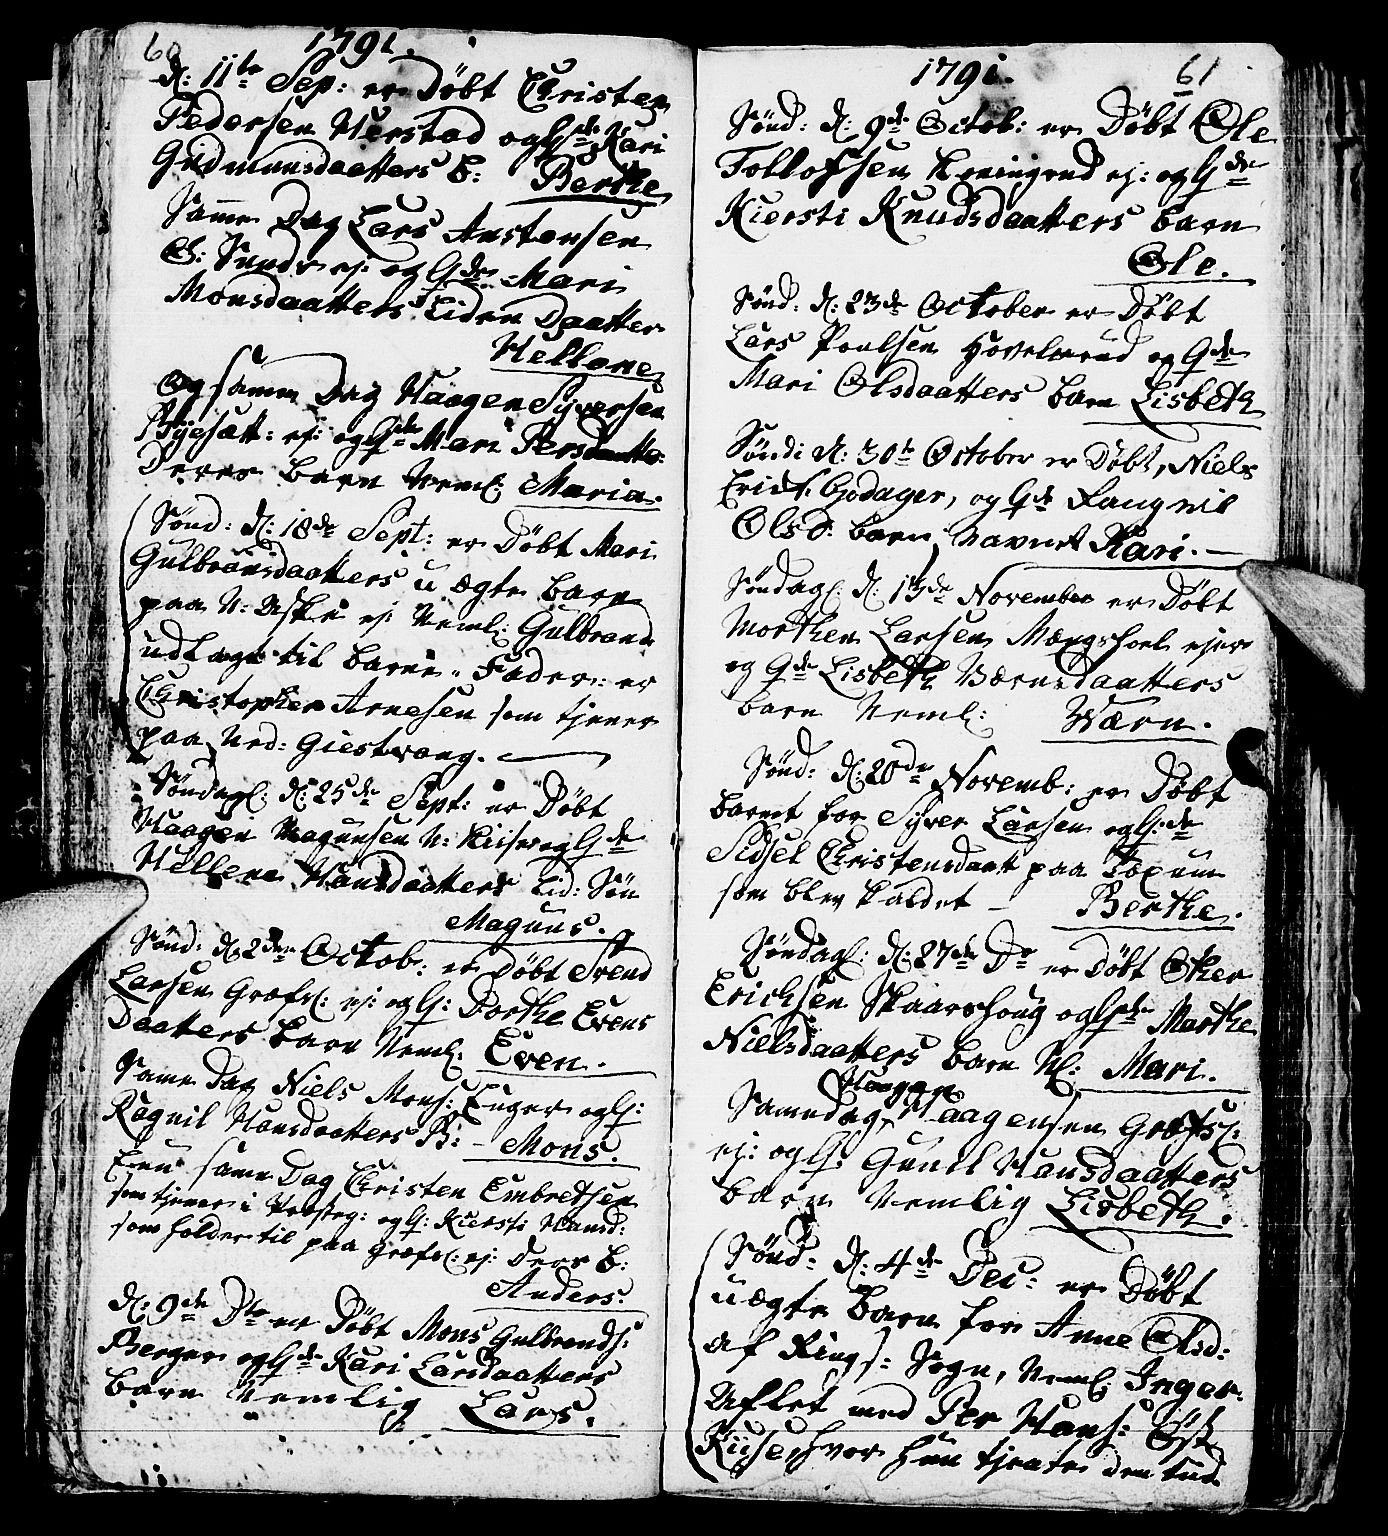 60 1791.
D: 11te Sep: er Døbt Christen
Pedersen Herstad og Hde Kari
Gudmundsdaatters B: Berthe
Samme Dag Lars Anstensen
ej: og Gde Mari
Monsdaatters Liden Daatter
Hellene
Og samme Dag Haagen Syversen
Byesætt: ej: og Hde Mari Persdaatter
Deres Barn Neml: Maria.
Sønd: D: 18de Sept: er Døbt Mari
Gulbransdaatters u ægte Barn
paa N: ej: Neml: Gulbrand
udlagt til Barne-Fader: er
Christopher Arnesen som tjener
paa Ned: Giestvang.
Søndagl: D: 25de Sept: er Døbt
Haagen Magunsen N: Kiise og Hde
Hellene Hansdaatters Lid: Søn
Maguns.
Sønd: D: 2den Octob: er Døbt Svend
Larsen Græfs: ej: og H: Dorthe Evens
Daatters Barn Neml: Even.
Same Dag Niels Mons: Enger og H:
Ragnil Hansdaatters B: - Mons.
Een samme Dag Christen Embretsen
som tjener i Præsteg: og H: Kiersti Hansd:
som holder til paa Græfs: ej: Deres B:
Anders.
D: 9de Dto er Døbt Mons Gulbrands:
Berger og Hde Kari Larsdaatters
Barn Nemlig Lars.
1791. 61
Sønd: D: 9de Octob: er Døbt Ole
Tollofsen ej: og Gde
Kiersti Knudsdaatters Barn
Ole.
Sønd: D: 23de October er Døbt
Lars Poulsen Hovelsrud og Gde
Mari Olsdaatters Barn Lisbeth
Søndi D: 30te October er Døbt, Niels
Erichs. Godager, og Gde Rangnil
Ols D: Barn, Navnet Kari.
Søndagl: D: 13de November er Døbt
Morthen Larsen Mængshoel ejer
og Gde Lisbeth Værnsdaatters
Barn Neml: Wærn.
Sønd: D: 20de Novemb: er Døbt
Barnet for Syver Larsen og H:de
Sidsel Christensdaatt paa Toxum
som blev kaldet - Berthe.
Søndagl: D: 27de Do er Døbt Other
Erichsen Skaarshoug og Hde Marthe
Nielsdaatters Barn N: Mari.
Haagen
Samedag, Haagensen Græfs:
ej: og H: Gunil Hansdaatters
Barn Nemlig Lisbeth.
Sønd: D: 4de Dec: er Døbt
uægte Barn for Anne Olsd:
af Rings: Sogn, Neml: Inger.
Aflet med Per Hans: Øst
Kiise, hvor hun tjente den Tid.